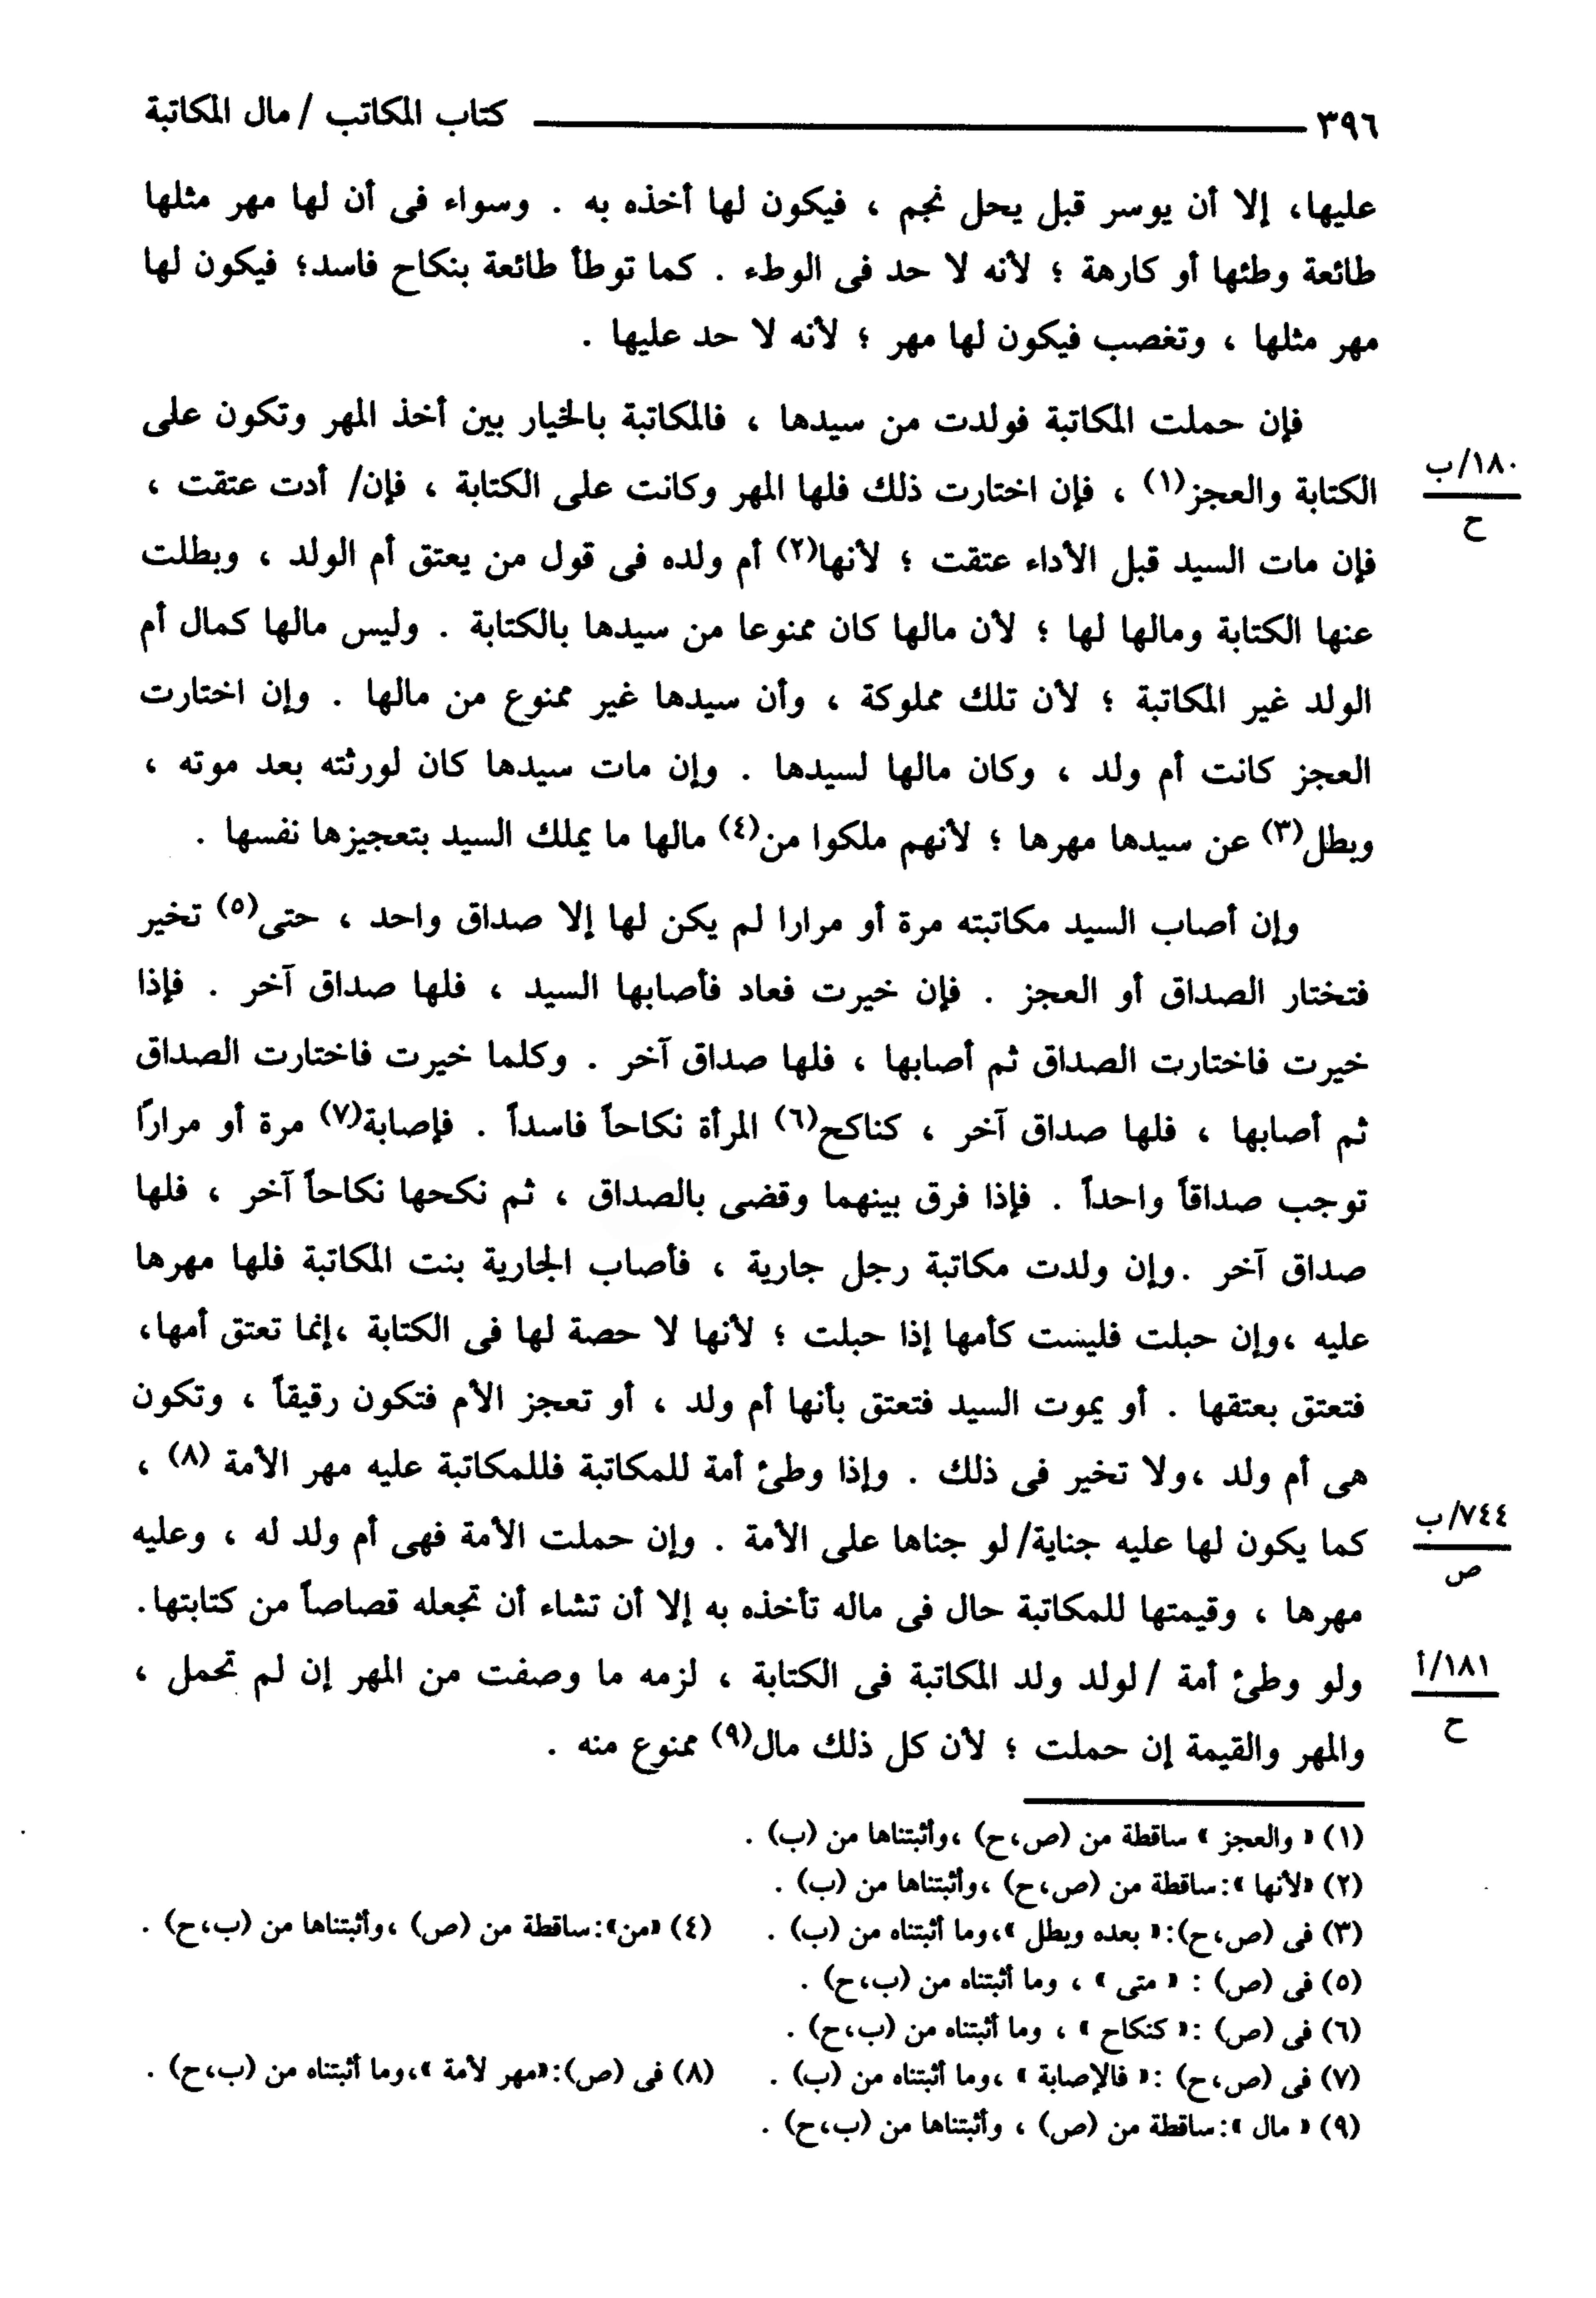 ٣٩٦ كتاب المكاتب / مال المكاتبة
عليها، إلا أن يوسر قبل يحل نجم ، فيكون لها أخذه به . وسواء فى أن لها مهر مثلها
طائعة وطئها أو كارهة ؛ لأنه لا حد فى الوطء . كما توطأ طائعة بنكاح فاسد؛ فيكون لها
مهر مثلها ، وتغصب فيكون لها مهر ؛ لأنه لا حد عليها .
فإن حملت المكاتبة فولدت من سيدها ، فالمكاتبة بالخيار بين أخذ المهر وتكون على
الكتابة والعجز(١) ، فإن اختارت ذلك فلها المهر وكانت على الكتابة ، فإن/ أدت عتقت ،
١٨٠/ب
ح
فإن مات السيد قبل الأداء عتقت ؛ لأنها(٢) أم ولده فى قول من يعتق أم الولد ، وبطلت
عنها الكتابة ومالها لها ؛ لأن مالها كان ممنوعا من سيدها بالكتابة . وليس مالها كمال أم
الولد غير المكاتبة ؛ لأن تلك مملوكة ، وأن سيدها غير ممنوع من مالها . وإن اختارت
العجز كانت أم ولد ، وكان مالها لسيدها . وإن مات سيدها كان لورثته بعد موته ،
وبطل(٣) عن سيدها مهرها ؛ لأنهم ملكوا من(٤) مالها ما يملك السيد بتعجيزها نفسها .
وإن أصاب السيد مكاتبته مرة أو مرارا لم يكن لها إلا صداق واحد ، حتى(٥) تخير
فتختار الصداق أو العجز . فإن خيرت فعاد فأصابها السيد ، فلها صداق آخر . فإذا
خيرت فاختارت الصداق ثم أصابها ، فلها صداق آخر . وكلما خيرت فاختارت الصداق
ثم أصابها ، فلها صداق آخر ، كناكح(٦) المرأة نكاحاً فاسداً . فإصابة(٧) مرة أو مراراً
توجب صداقاً واحداً . فإذا فرق بينهما وقضى بالصداق ، ثم نكحها نكاحاً آخر ، فلها
صداق آخر .وإن ولدت مكاتبة رجل جارية ، فأصاب الجارية بنت المكاتبة فلها مهرها
عليه ،وإن حبلت فليست كأمها إذا حبلت ؛ لأنها لا حصة لها فى الكتابة ،إنما تعتق أمها،
فتعتق بعتقها . أو يموت السيد فتعتق بأنها أم ولد ، أو تعجز الأم فتكون رقيقاً ، وتكون
هى أم ولد ،ولا تخير فى ذلك . وإذا وطئ أمة للمكاتبة فللمكاتبة عليه مهر الأمة (٨) ،
كما يكون لها عليه جناية/ لو جناها على الأمة . وإن حملت الأمة فهى أم ولد له ، وعليه
٧٤٤/ب
ص
مهرها ، وقيمتها للمكاتبة حال فى ماله تأخذه به إلا أن تشاء أن تجعله قصاصاً من كتابتها.
ولو وطئ أمة / لولد ولد المكاتبة فى الكتابة ، لزمه ما وصفت من المهر إن لم تحمل ،
١٨١/أ
ح
والمهر والقيمة إن حملت ؛ لأن كل ذلك مال(٩) ممنوع منه .
(١) « والعجز » ساقطة من (ص،ح) ،وأثبتناها من (ب) .
(٢) «لأنها »:ساقطة من (ص،ح) ،وأثبتناها من (ب) .
(٣) فى (ص،ح):« بعده وبطل »،وما أثبتناه من (ب) . (٤) «من»:ساقطة من (ص) ،وأثبتناها من (ب،ح) .
(٥) فى (ص) : « متى » ، وما أثبتناه من (ب،ح) .
(٦) فى (ص) :« كنكاح » ، وما أثبتناه من (ب،ح) .
(٧) فى (ص،ح) :« فالإصابة » ،وما أثبتناه من (ب) . (٨) فى (ص):«مهر لأمة »،وما أثبتناه من (ب،ح) .
(٩) « مال »:ساقطة من (ص) ، وأثبتناها من (ب،ح) .